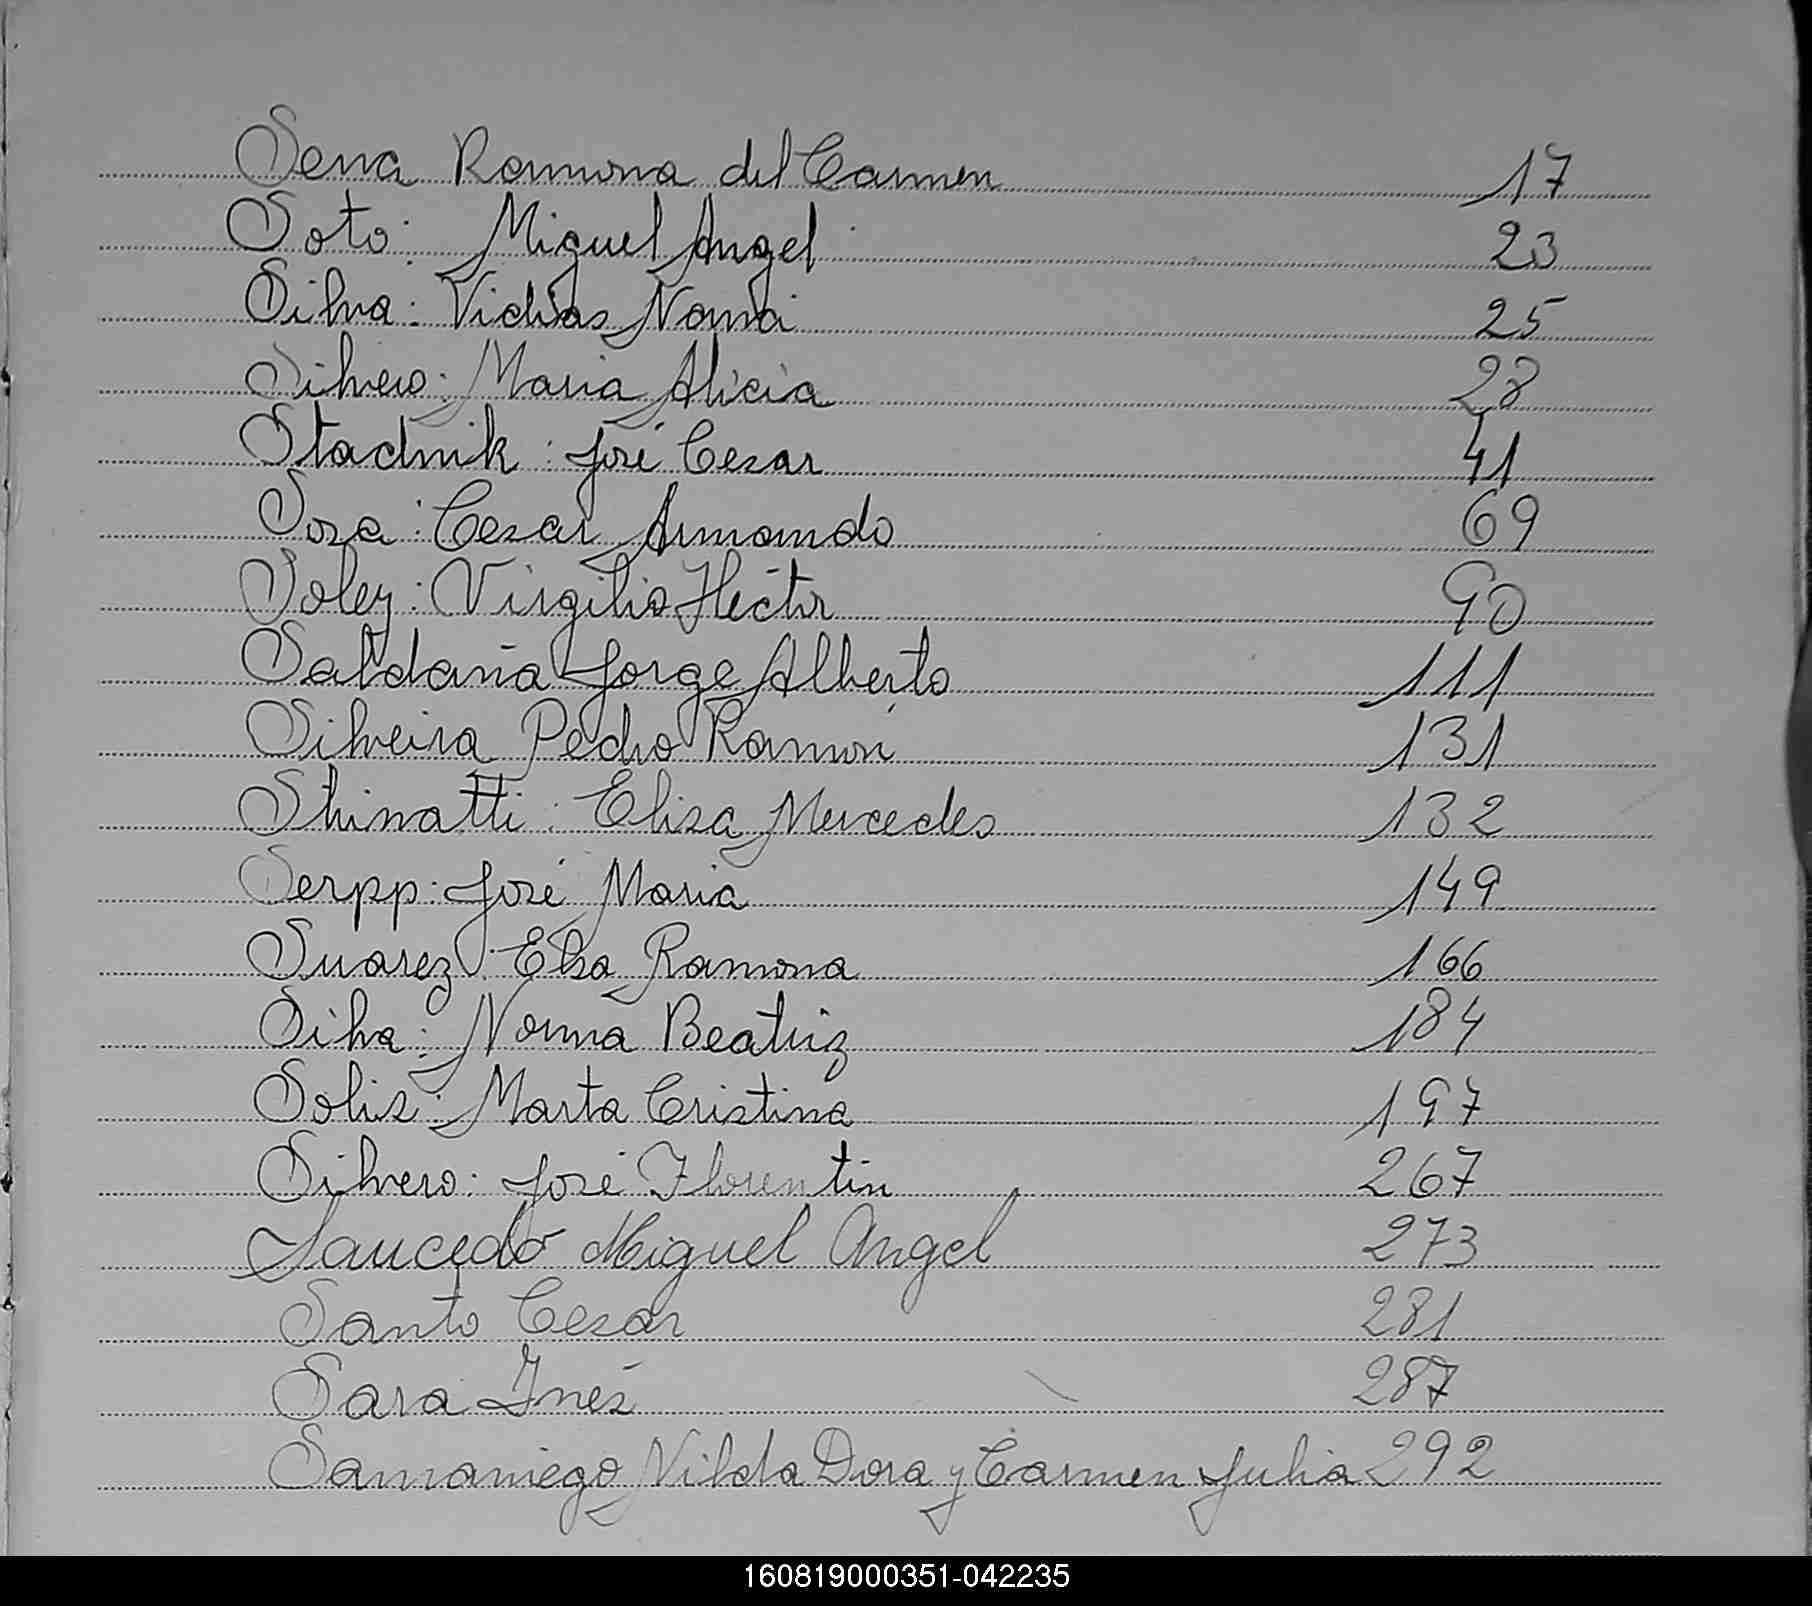 Sena Ramona del Carmen 17
Soto: Miguel Angel 23
Silva: Norma 25
Silvero: Maria Alicia 28
Stadnik: José Cesar 41
Sosa: Cesar Armando 69
Soley: Virgilio Héctor 90
Saldaña Jorge Alberto 111
Silveira Pedro Ramón 131
Elisa Mercedes 132
Serpp: José Maria 149
Suarez: Elsa Ramona 166
Silva: Norma Beatriz 184
Solis: Marta Cristina 197
Silvero: José Florentin 267
Saucedo Miguel Angel 273
Santo Cesar 281
Sara Inés 287
Samaniego Nilda Dora y Carmen Julia 292
160819000351-042235